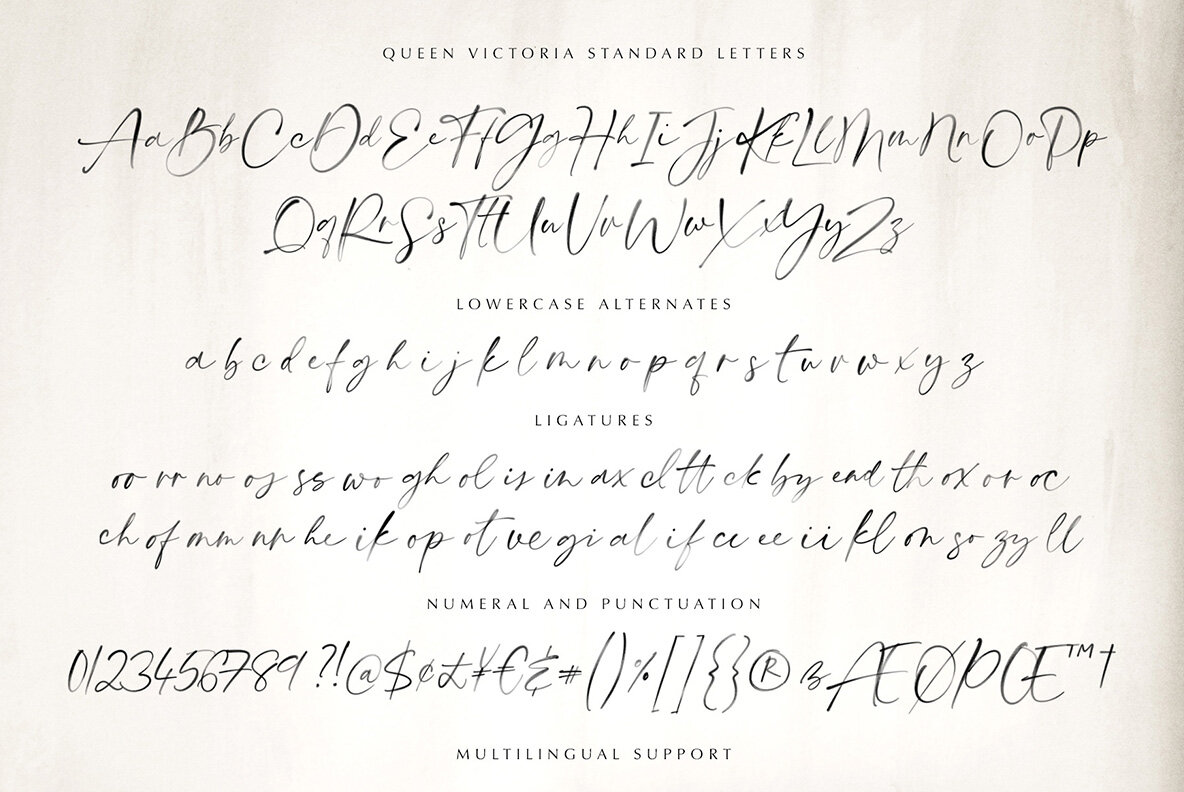 QUEEN VICTORIA STANDARD LETTERS
AaBbCcDdEeFfGgHhIiJjKkLlMmNnOoPp
QqRrSsTtUuVvWwXxYyZz
LOWERCASE ALTERNATES
a b c d e f g h i j k l m n o p q r s t u v w x y z
LIGATURES
oo rr no os ss wo gh ol is in ax cl tt ck by end th ox or oc
ch of mm nn he ik op ot ve gi al if cc ee ii kl on so zy ll
NUMERAL AND PUNCTUATION
0123456789 ?!@$¢£¥€&#()%[]{}® ß ÆØÞŒ™†
MULTILINGUAL SUPPORT